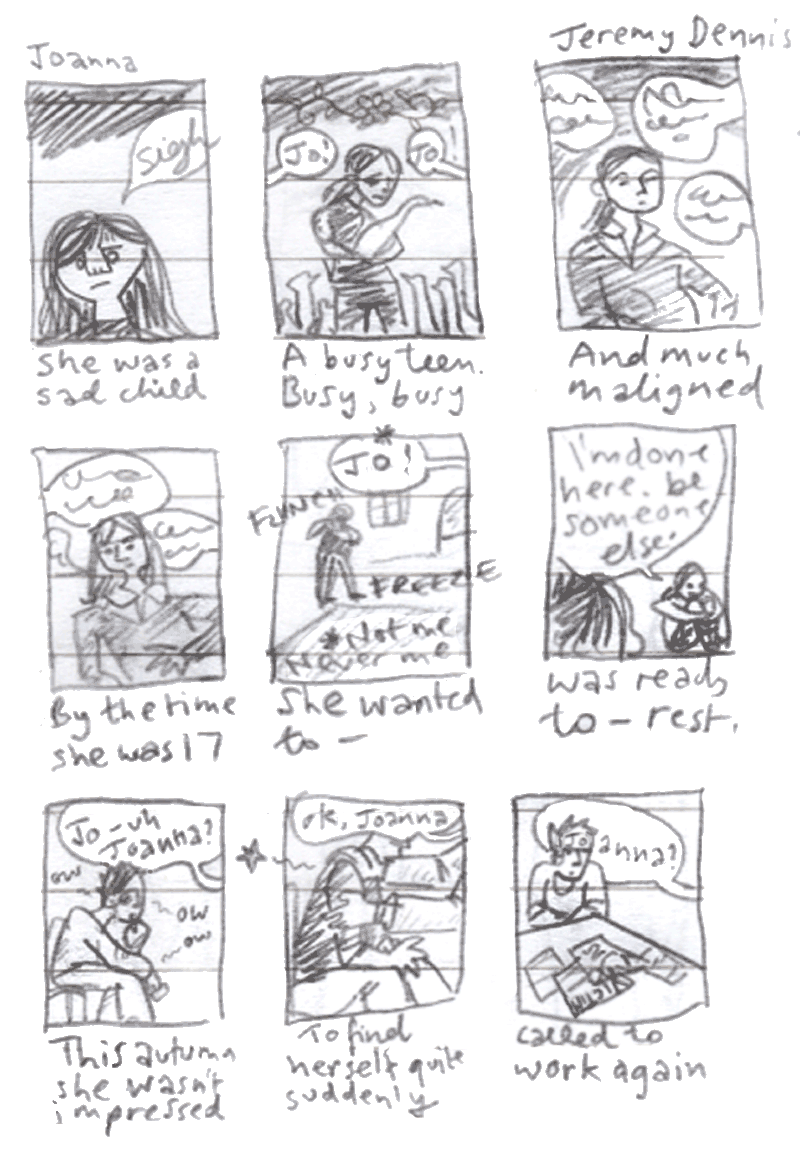 Joanna
Jeremy Dennis
Sigh
She was a
sad child
Jo!
Jo
A busy teen.
Busy, busy
And much
maligned
By the time
she was 17
*
JO!
FLINCH
FREEZE
*Not me
Never me
She wanted
to -
I'm done
here. be
someone
else.
was ready
to - rest.
Jo - uh
Joanna?
ow
ow
ow
This autumn
she wasn't
impressed
ok, Joanna
To find
herself quite
suddenly
Joanna?
called to
work again